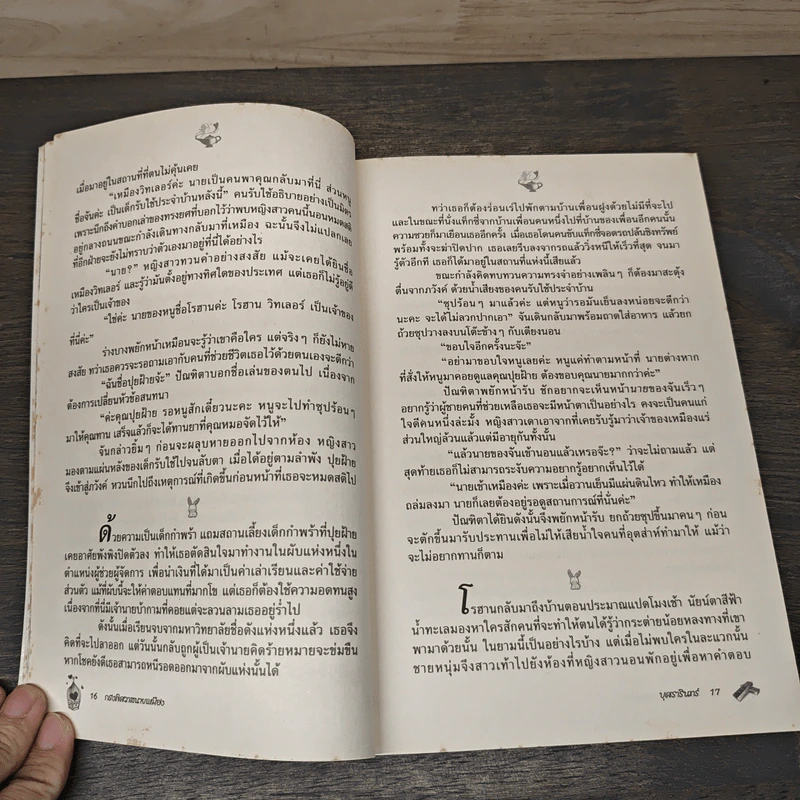 เมื่อมาอยู่ในสถานที่ที่ตนไม่คุ้นเคย
“เหมืองวิทเลอร์ค่ะ นายเป็นคนพาคุณกลับมาที่นี่ ส่วนหนู
ชื่อจันค่ะ เป็นเด็กรับใช้ประจำบ้านหลังนี้” คนรับใช้อธิบายอย่างเป็นมิตร
เพราะนึกถึงคำบอกเล่าของทรงยศที่บอกไว้ว่าพบหญิงสาวคนนี้นอนหมดสติ
อยู่กลางถนนขณะกำลังเดินทางกลับมาที่เหมือง ฉะนั้นจึงไม่แปลกเลย
ที่อีกฝ่ายจะยังไม่ทราบว่าตัวเองมาอยู่ที่นี่ได้อย่างไร
“นาย?” หญิงสาวทวนคำอย่างสงสัย แม้จะเคยได้ยินชื่อ
เหมืองวิทเลอร์ และรู้ว่ามันตั้งอยู่ทางทิศใดของประเทศ แต่เธอก็ไม่รู้อยู่ดี
ว่าใครเป็นเจ้าของ
“ใช่ค่ะ นายของหนูชื่อโรฮานค่ะ โรฮาน วิทเลอร์ เป็นเจ้าของ
ที่นี่ค่ะ”
ร่างบางพยักหน้าเหมือนจะรู้ว่าเขาคือใคร แต่จริงๆ ก็ยังไม่หาย
สงสัย ทว่าเธอควรจะรอถามเอากับคนที่ช่วยชีวิตเธอไว้ด้วยตนเองจะดีกว่า
“ฉันชื่อปุยฝ้ายจ้ะ” ปัณฑิตาบอกชื่อเล่นของตนไป เนื่องจาก
ต้องการเปลี่ยนหัวข้อสนทนา
“ค่ะคุณปุยฝ้าย รอหนูสักเดี๋ยวนะคะ หนูจะไปทำซุปร้อนๆ
มาให้คุณทาน เสร็จแล้วก็จะได้ทานยาที่คุณหมอจัดไว้ให้”
จันกล่าวยิ้มๆ ก่อนจะผลุบหายออกไปจากห้อง หญิงสาว
มองตามแผ่นหลังของเด็กรับใช้ไปจนลับตา เมื่อได้อยู่ตามลำพัง ปุยฝ้าย
จึงเข้าสู่ภวังค์ หวนนึกไปถึงเหตุการณ์ที่เกิดขึ้นก่อนหน้าที่เธอจะหมดสติไป
ด้วยความเป็นเด็กกำพร้า แถมสถานเลี้ยงเด็กกำพร้าที่ปุยฝ้าย
เคยอาศัยพักพิงปิดตัวลง ทำให้เธอตัดสินใจมาทำงานในผับแห่งหนึ่งใน
ตำแหน่งผู้ช่วยผู้จัดการ เพื่อนำเงินที่ได้มาเป็นค่าเล่าเรียนและค่าใช้จ่าย
ส่วนตัว แม้ที่ผับนี้จะให้ค่าตอบแทนที่มากโข แต่เธอก็ต้องใช้ความอดทนสูง
เนื่องจากที่นี่มีเจ้านายบ้ากามที่คอยแต่จะลวนลามเธออยู่ร่ำไป
ดังนั้นเมื่อเรียนจบจากมหาวิทยาลัยชื่อดังแห่งหนึ่งแล้ว เธอจึง
คิดที่จะไปลาออก แต่วันนั้นกลับถูกผู้เป็นเจ้านายคิดร้ายหมายจะข่มขืน
หากโชคยังดีเธอสามารถหนีรอดออกมาจากผับแห่งนั้นได้
16 กลกิเลวาซนายเหมือง
ทว่าเธอก็ต้องร่อนเร่ไปพักตามบ้านเพื่อนฝูงด้วยไม่มีที่จะไป
และในขณะที่นั่งแท็กซี่จากบ้านเพื่อนคนหนึ่งไปที่บ้านของเพื่อนอีกคนนั้น
ความซวยก็มาเยือนเธออีกครั้ง เมื่อเธอโดนคนขับแท็กซี่จอดรถปล้นชิงทรัพย์
พร้อมทั้งจะฆ่าปิดปาก เธอเลยรีบลงจากรถแล้ววิ่งหนีให้เร็วที่สุด จนมา
รู้ตัวอีกที เธอก็ได้มาอยู่ในสถานที่แห่งนี้เสียแล้ว
ขณะกำลังคิดทบทวนความทรงจำอย่างเพลินๆ ก็ต้องมาสะดุ้ง
ตื่นจากภวังค์ ด้วยน้ำเสียงของคนรับใช้ประจำบ้าน
“ซุปร้อนๆ มาแล้วค่ะ แต่หนูว่ารอมันเย็นลงหน่อยจะดีกว่า
นะคะ จะได้ไม่ลวกปากเอา” จันเดินกลับมาพร้อมถาดใส่อาหาร แล้วยก
ถ้วยซุปวางลงบนโต๊ะข้างๆ กับเตียงนอน
“ขอบใจอีกครั้งนะจ๊ะ”
“อย่ามาขอบใจหนูเลยค่ะ หนูแค่ทำตามหน้าที่ นายต่างหาก
ที่สั่งให้หนูมาคอยดูแลคุณปุยฝ้าย ต้องขอบคุณนายมากกว่าค่ะ”
ปัณฑิตาพยักหน้ารับ ชักอยากจะเห็นหน้านายของจันเร็วๆ
อยากรู้ว่าผู้ชายคนที่ช่วยเหลือเธอจะมีหน้าตาเป็นอย่างไร คงจะเป็นคนแก่
ใจดีคนหนึ่งล่ะมั้ง หญิงสาวเดาเอาจากที่เคยรับรู้มาว่าเจ้าของเหมืองแร่
ส่วนใหญ่ล้วนแล้วแต่มีอายุกันทั้งนั้น
“แล้วนายของจันเข้านอนแล้วเหรอจ๊ะ?” ว่าจะไม่ถามแล้ว แต่
สุดท้ายเธอก็ไม่สามารถระงับความอยากรู้อยากเห็นไว้ได้
“นายเข้าเหมืองค่ะ เพราะเมื่อวานเย็นมีแผ่นดินไหว ทำให้เหมือง
ถล่มลงมา นายก็เลยต้องอยู่รอดูสถานการณ์ที่นั่นค่ะ”
ปัณฑิตาได้ยินดังนั้นจึงพยักหน้ารับ ยกถ้วยซุปขึ้นมาคนๆ ก่อน
จะตักขึ้นมารับประทานเพื่อไม่ให้เสียน้ำใจคนที่อุตส่าห์ทำมาให้ แม้ว่า
จะไม่อยากทานก็ตาม
โรฮานกลับมาถึงบ้านตอนประมาณแปดโมงเช้า นัยน์ตาสีฟ้า
น้ำทะเลมองหาใครสักคนที่จะทำให้ตนได้รู้ว่ากระต่ายน้อยหลงทางที่เขา
พามาด้วยนั้น ในยามนี้เป็นอย่างไรบ้าง แต่เมื่อไม่พบใครในละแวกนั้น
ชายหนุ่มจึงสาวเท้าไปยังห้องที่หญิงสาวนอนพักอยู่เพื่อหาคำตอบ
บุศรารินทร์ 17